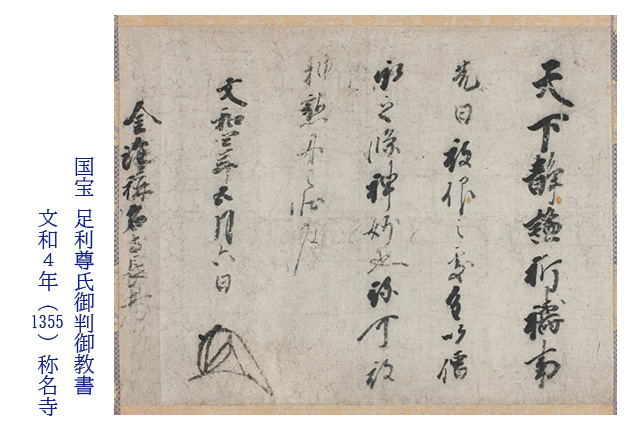 天下静謐祈祷事
先日被仰之處
之條神妙也弥可被
抽懇丹之状
文和四年 月六日
金澤称名寺長老
国宝 足利尊氏御判御教書
文和4年(1355)称名寺